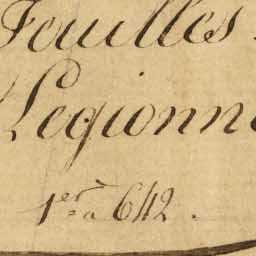 Feuilles
Légionn
1er à 642.